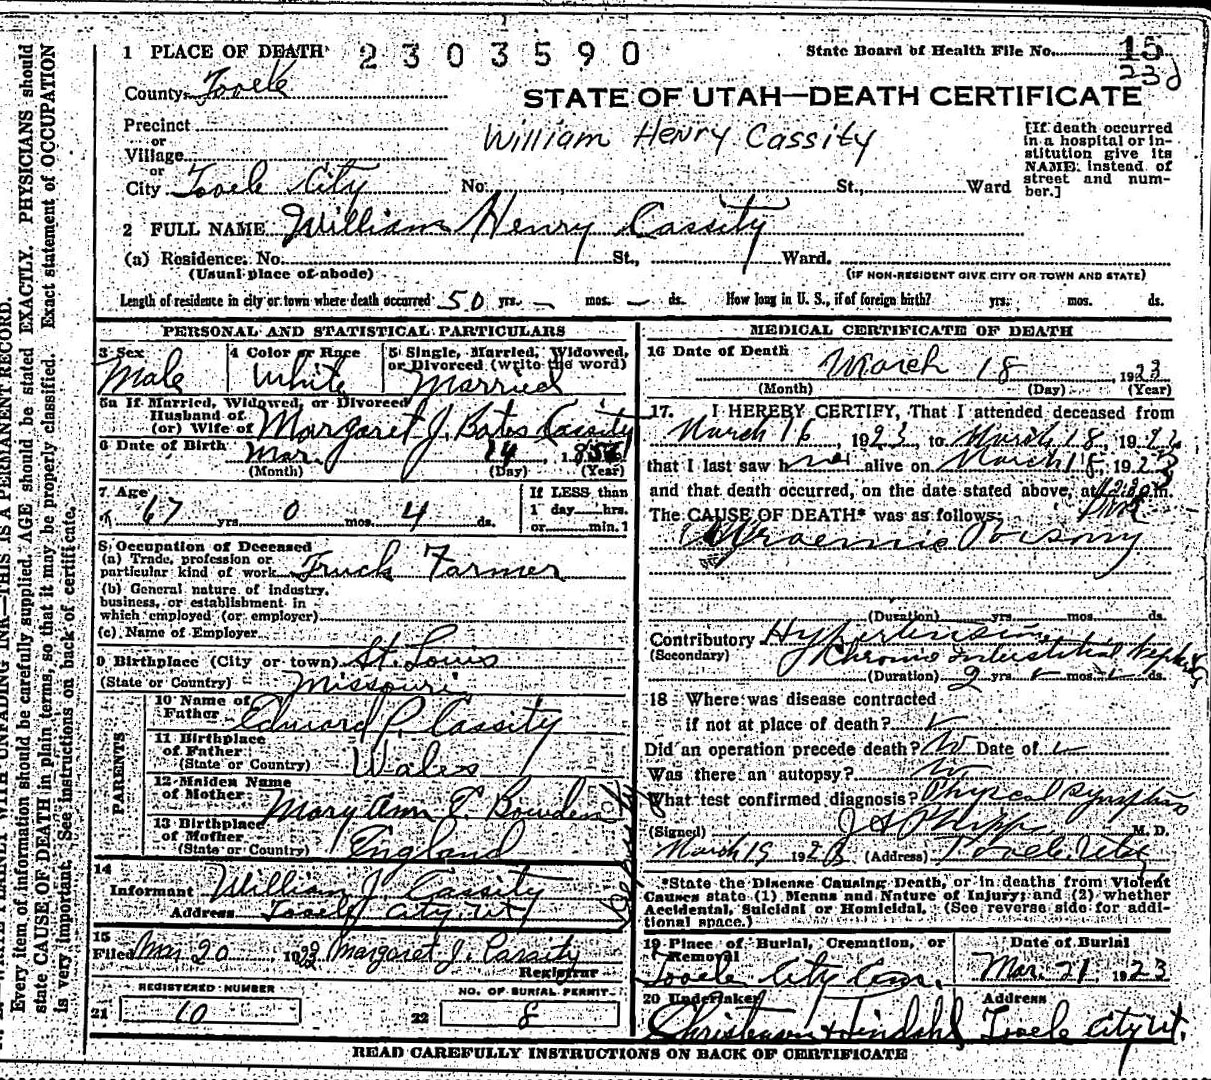 1 PLACE OF DEATH 2303590 State Board of Health File No. 15
County Tooele
STATE OF UTAH—DEATH CERTIFICATE
Precinct
or
Village
or
William Henry Cassity
[If death occurred
in a hospital or in-
stitution give its
NAME instead of
street and num-
ber.]
City Tooele City No. St., Ward
2 FULL NAME William Henry Cassity
(a) Residence: No. St., Ward.
(Usual place of abode) (IF NON-RESIDENT GIVE CITY OR TOWN AND STATE)
Length of residence in city or town where death occurred 50 yrs. — mos. — ds. How long in U. S., if of foreign birth? yrs. mos. ds.
PERSONAL AND STATISTICAL PARTICULARS
3 Sex 4 Color or Race 5 Single, Married, Widowed,
or Divorced (write the word)
Male White Married
5a If Married, Widowed, or Divorced
Husband of
(or) Wife of Margaret J. Bates Cassity
6 Date of Birth Mar. 14, 1856
(Month) (Day) (Year)
7 Age If LESS than
67 yrs 0 mos. 4 ds. 1 day hrs.
or min.
8 Occupation of Deceased
(a) Trade, profession or
particular kind of work Truck Farmer
(b) General nature of industry,
business, or establishment in
which employed (or employer)
(c) Name of Employer
9 Birthplace (City or town) St. Louis
(State or Country) Missouri
PARENTS
10 Name of
Father Edward P. Cassity
11 Birthplace
of Father
(State or Country) Wales
12 Maiden Name
of Mother Mary Ann E. Bowden
13 Birthplace
of Mother
(State or Country) England
14
Informant William J. Cassity
Address Tooele City Ut
15
Filed Mar 20 1923 Margaret J. Cassity
Registrar
REGISTERED NUMBER NO. OF BURIAL PERMIT
21 10 22 8
MEDICAL CERTIFICATE OF DEATH
16 Date of Death March 18, 1923
(Month) (Day) (Year)
17. I HEREBY CERTIFY, That I attended deceased from
March 16, 1923, to March 18, 19
that I last saw h alive on March 18, 1923
and that death occurred, on the date stated above, at m.
The CAUSE OF DEATH* was as follows:
Uraemic Poisony
(Duration) yrs mos. ds.
Contributory Hypertension
(Secondary) Chronic Interstitial Nephritis
(Duration) 2 yrs mos. ds.
18 Where was disease contracted
if not at place of death?
Did an operation precede death? No Date of
Was there an autopsy? No
What test confirmed diagnosis? Physical Symptoms
(Signed) M. D.
March 19 192 (Address) Tooele, Utah
*State the Disease Causing Death, or in deaths from Violent
Causes state (1) Means and Nature of Injury; and (2) whether
Accidental, Suicidal or Homicidal. (See reverse side for addi-
tional space.)
19 Place of Burial, Cremation, or Date of Burial
Removal
Tooele City Cem. Mar. 21 1923
20 Undertaker Address
Tooele City Ut.
READ CAREFULLY INSTRUCTIONS ON BACK OF CERTIFICATE
WRITE PLAINLY WITH UNFADING INK—THIS IS A PERMANENT RECORD.
Every item of information should be carefully supplied. AGE should be stated EXACTLY. PHYSICIANS should
state CAUSE OF DEATH in plain terms, so that it may be properly classified. Exact statement of OCCUPATION
is very important. See instructions on back of certificate.